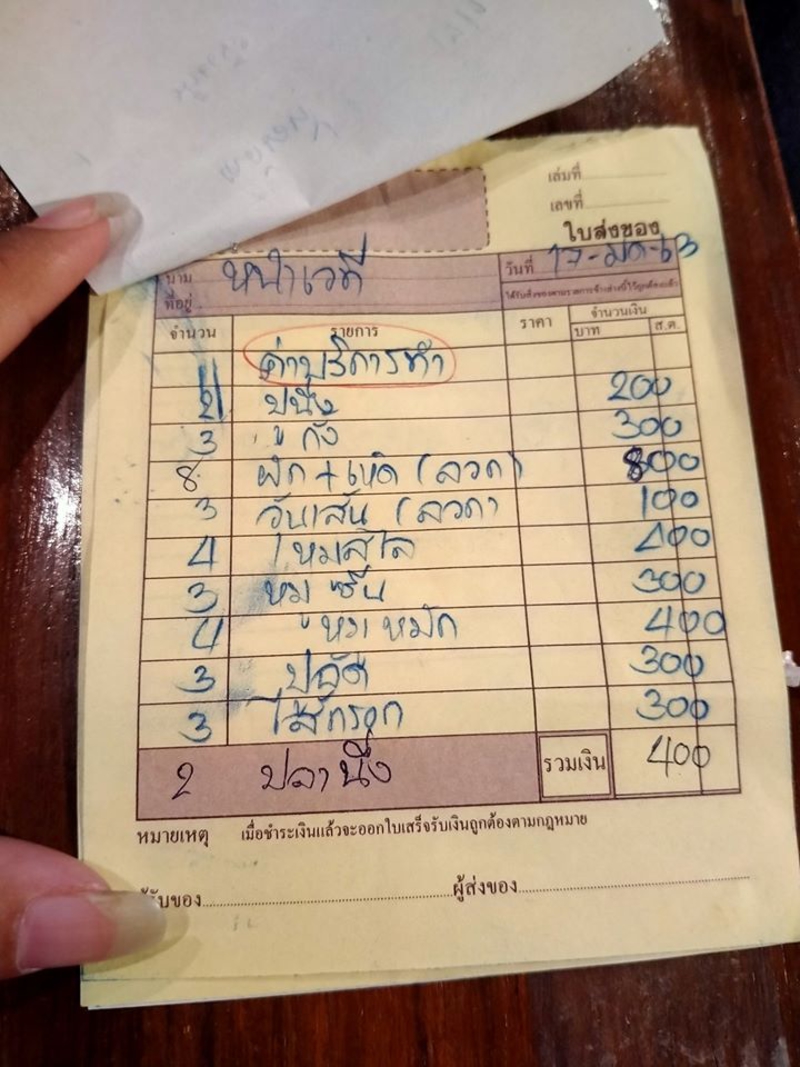 เล่มที่
เลขที่
ใบส่งของ
นาม หน้าเวที วันที่ 17-มค-63
ที่อยู่
จำนวน รายการ ราคา จำนวนเงิน
บาท ส.ต.
ค่าบริการทำ
2 ปูนึ่ง 200
3 " กุ้ง 300
8 ผัก+เห็ด (ลวก) 800
3 วุ้นเส้น (ลวก) 100
4 400
3 หมูชิ้น 300
4 " หมูหมัก 400
3 300
3 ไส้กรอก 300
2 ปลานึ่ง รวมเงิน 400
หมายเหตุ เมื่อชำระเงินแล้วจะออกใบเสร็จรับเงินถูกต้องตามกฎหมาย
ผู้รับของ ผู้ส่งของ